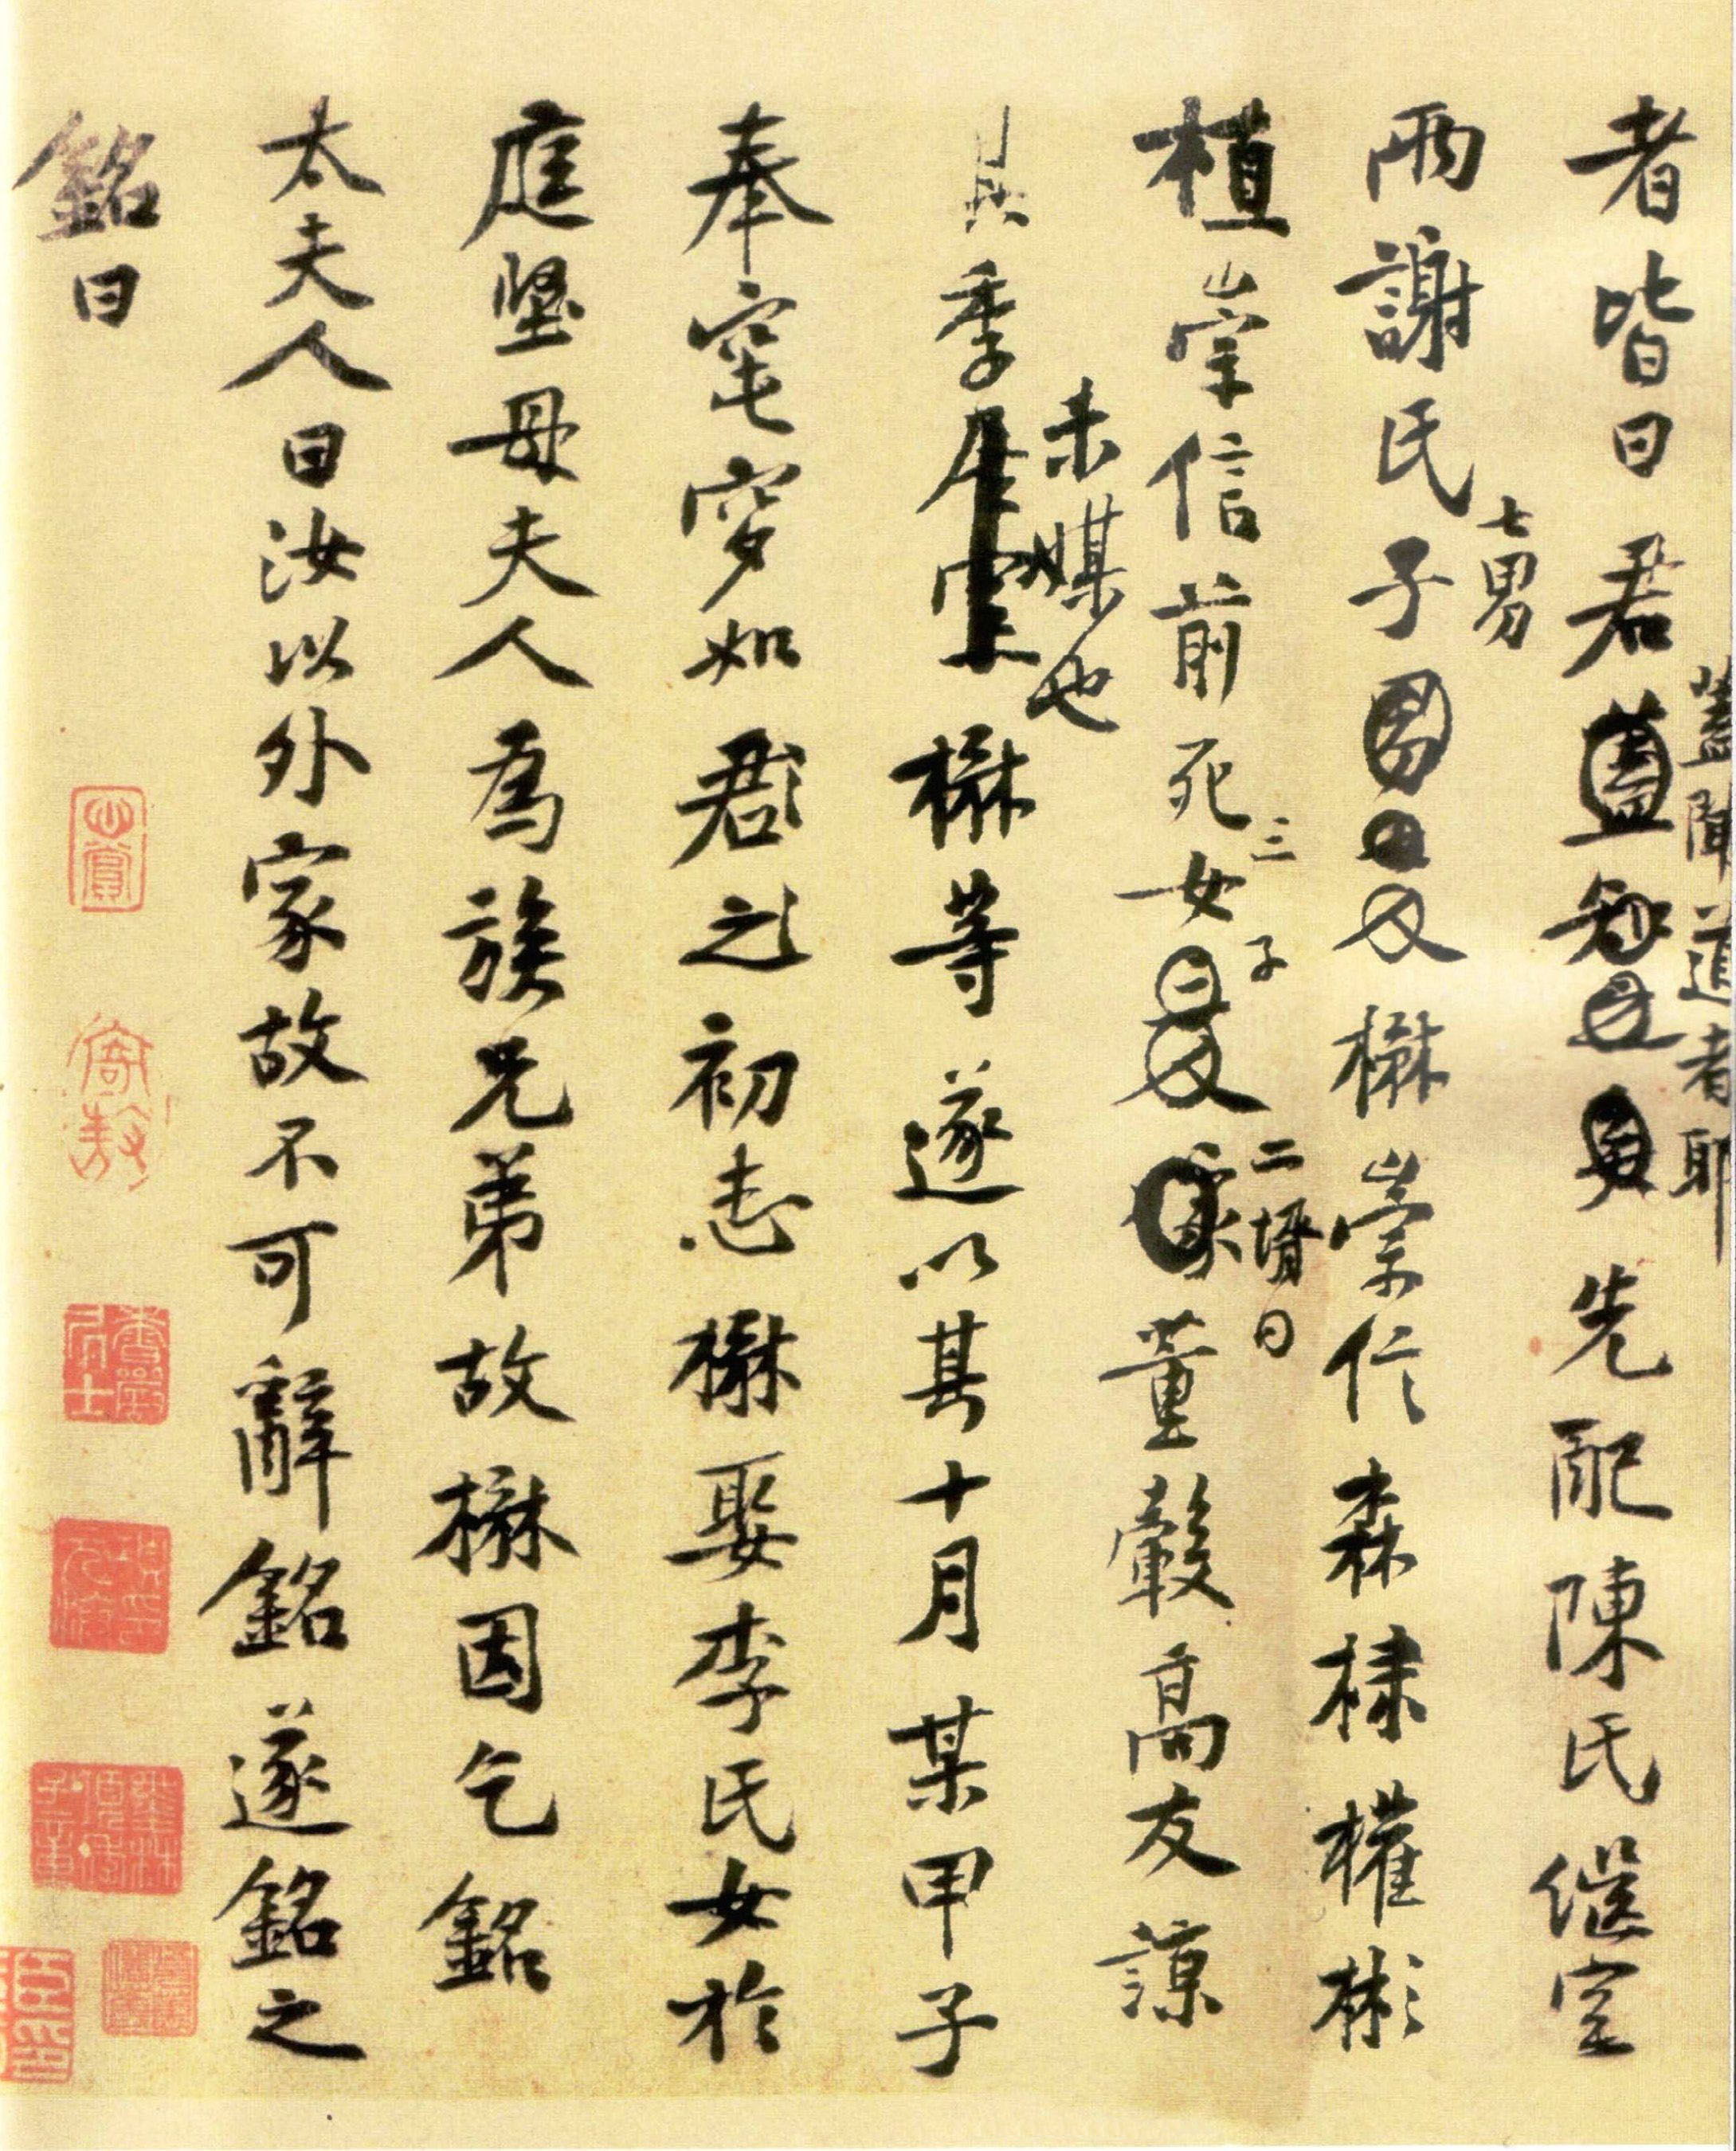 蓋聞道者耶
者皆曰君蓋知先配陳氏繼室
七男
兩謝氏子男人楙崇仁森棣權彬
三子二壻曰
植崇信前死女二人董轂高友諒
未媒也
其季在室楙等遂以其十月某甲子
奉窀穸如君之初志楙娶李氏女於
庭堅母夫人為族兄弟故楙因乞銘
太夫人曰汝以外家故不可辭銘遂銘之
銘曰